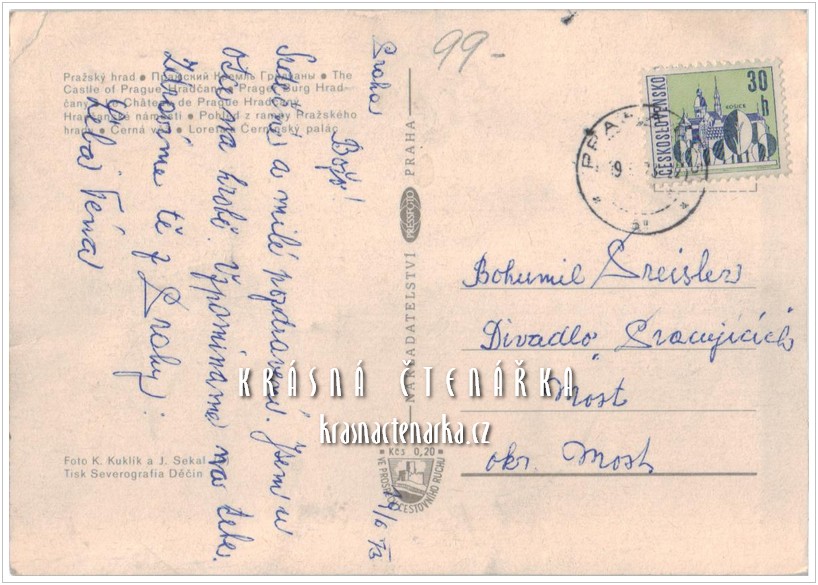 Pražský hrad ● Пражский Кремль Градчаны ● The
Castle of Prague Hradčany ● Prager Burg Hrad-
čany ● Château de Prague Hradčany
Hradčanské náměstí ● Pohled z rampy Pražského
hradu ● Černá věž ● Loreta ● Černínský palác
Foto K. Kuklík a J. Sekal
Tisk Severografia Děčín
Praha
19/6 73
Božo!
Srdečné a milé pozdravení. Jsem u
otce na hrobě. Vzpomínáme na tebe.
Zdravíme tě z Prahy!
Líba
NAKLADATELSTVÍ PRESSFOTO PRAHA
Kčs 0,20
VE PROSPĚCH CESTOVNÍHO RUCHU
99-
ČESKOSLOVENSKO
30
h
KOŠICE
PRAHA
19
Bohumil Preisler
Divadlo Pracujících
Most
okr. Most
KRÁSNÁ ČTENÁŘKA
krasnactenarka.cz